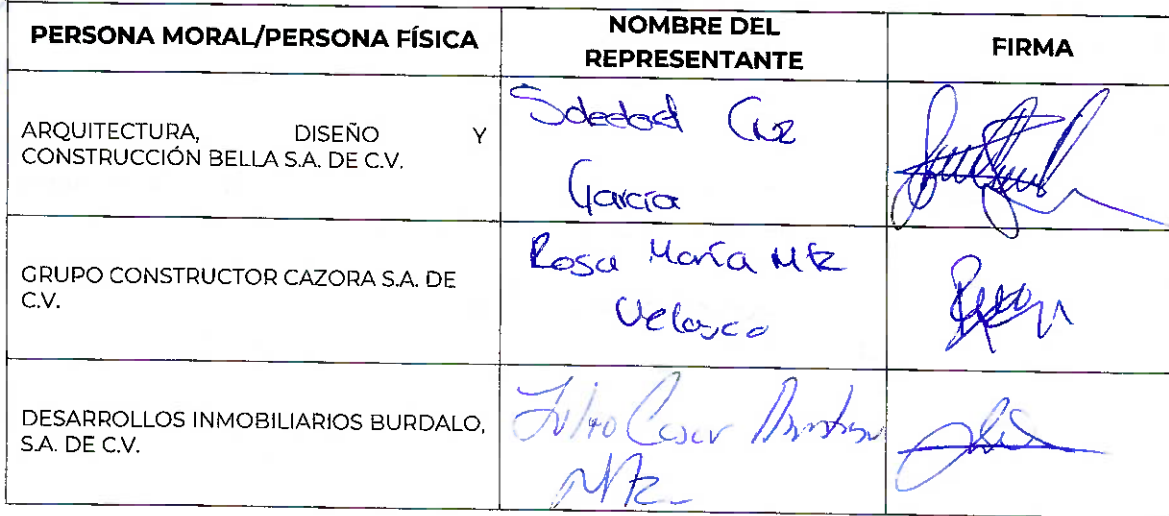 PERSONA MORAL/PERSONA FÍSICA
NOMBRE DEL
REPRESENTANTE
FIRMA
ARQUITECTURA, DISEÑO Y
CONSTRUCCIÓN BELLA S.A. DE C.V.
Soledad Cruz
García
GRUPO CONSTRUCTOR CAZORA S.A. DE
C.V.
Rosa María Mtz
Velasco
DESARROLLOS INMOBILIARIOS BURDALO,
S.A. DE C.V.
Julio Cesar
Mtz-